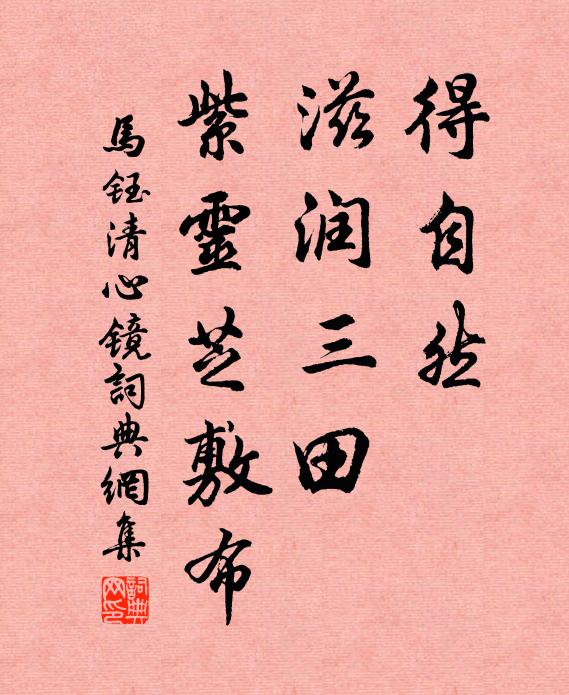 得自然
滋润三田
紫靈芝敷布
馬鈺清心鏡詞典網集
詞典网印